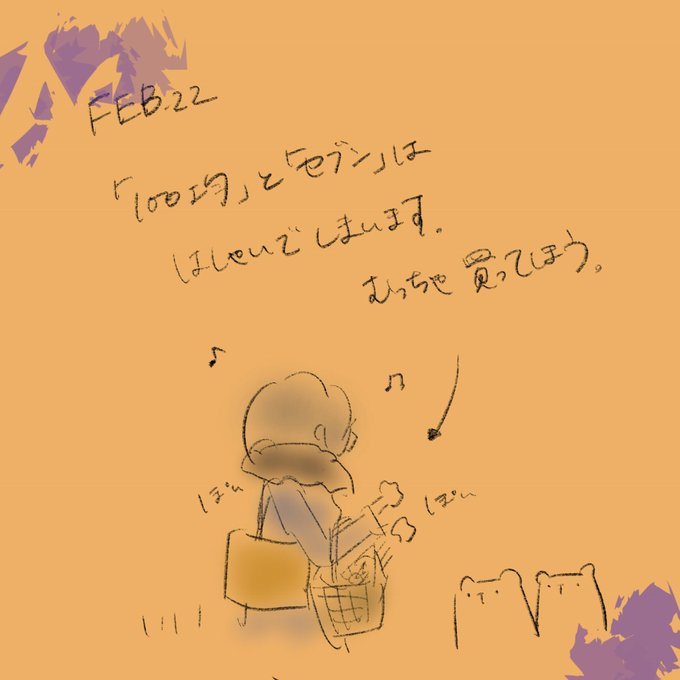 FEB.22
「100均」と「セブン」は
はしゃいでしまいます。
むっちゃ買ってほう。
ぽい
ぽい